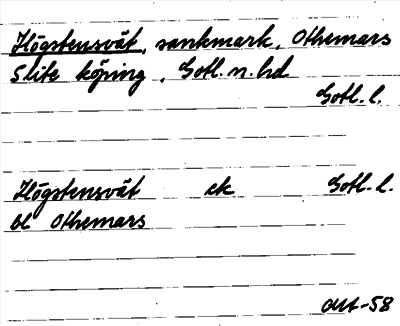 Högstensvät, sankmark, Othemars
Slite köping, Gotl. n. hd
Gotl. l.
Högstensvät ek Gotl. l.
bl Othemars